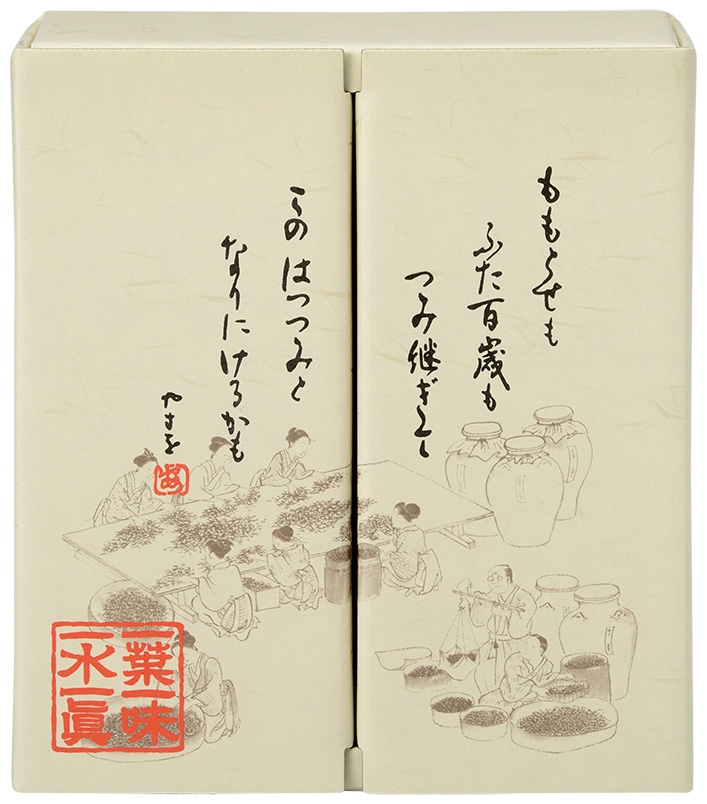 ももとせも
ふた百歳も
つみ継ぎてし
このはつつみと
なりにけるかも
やすを
一葉一味
一水一眞